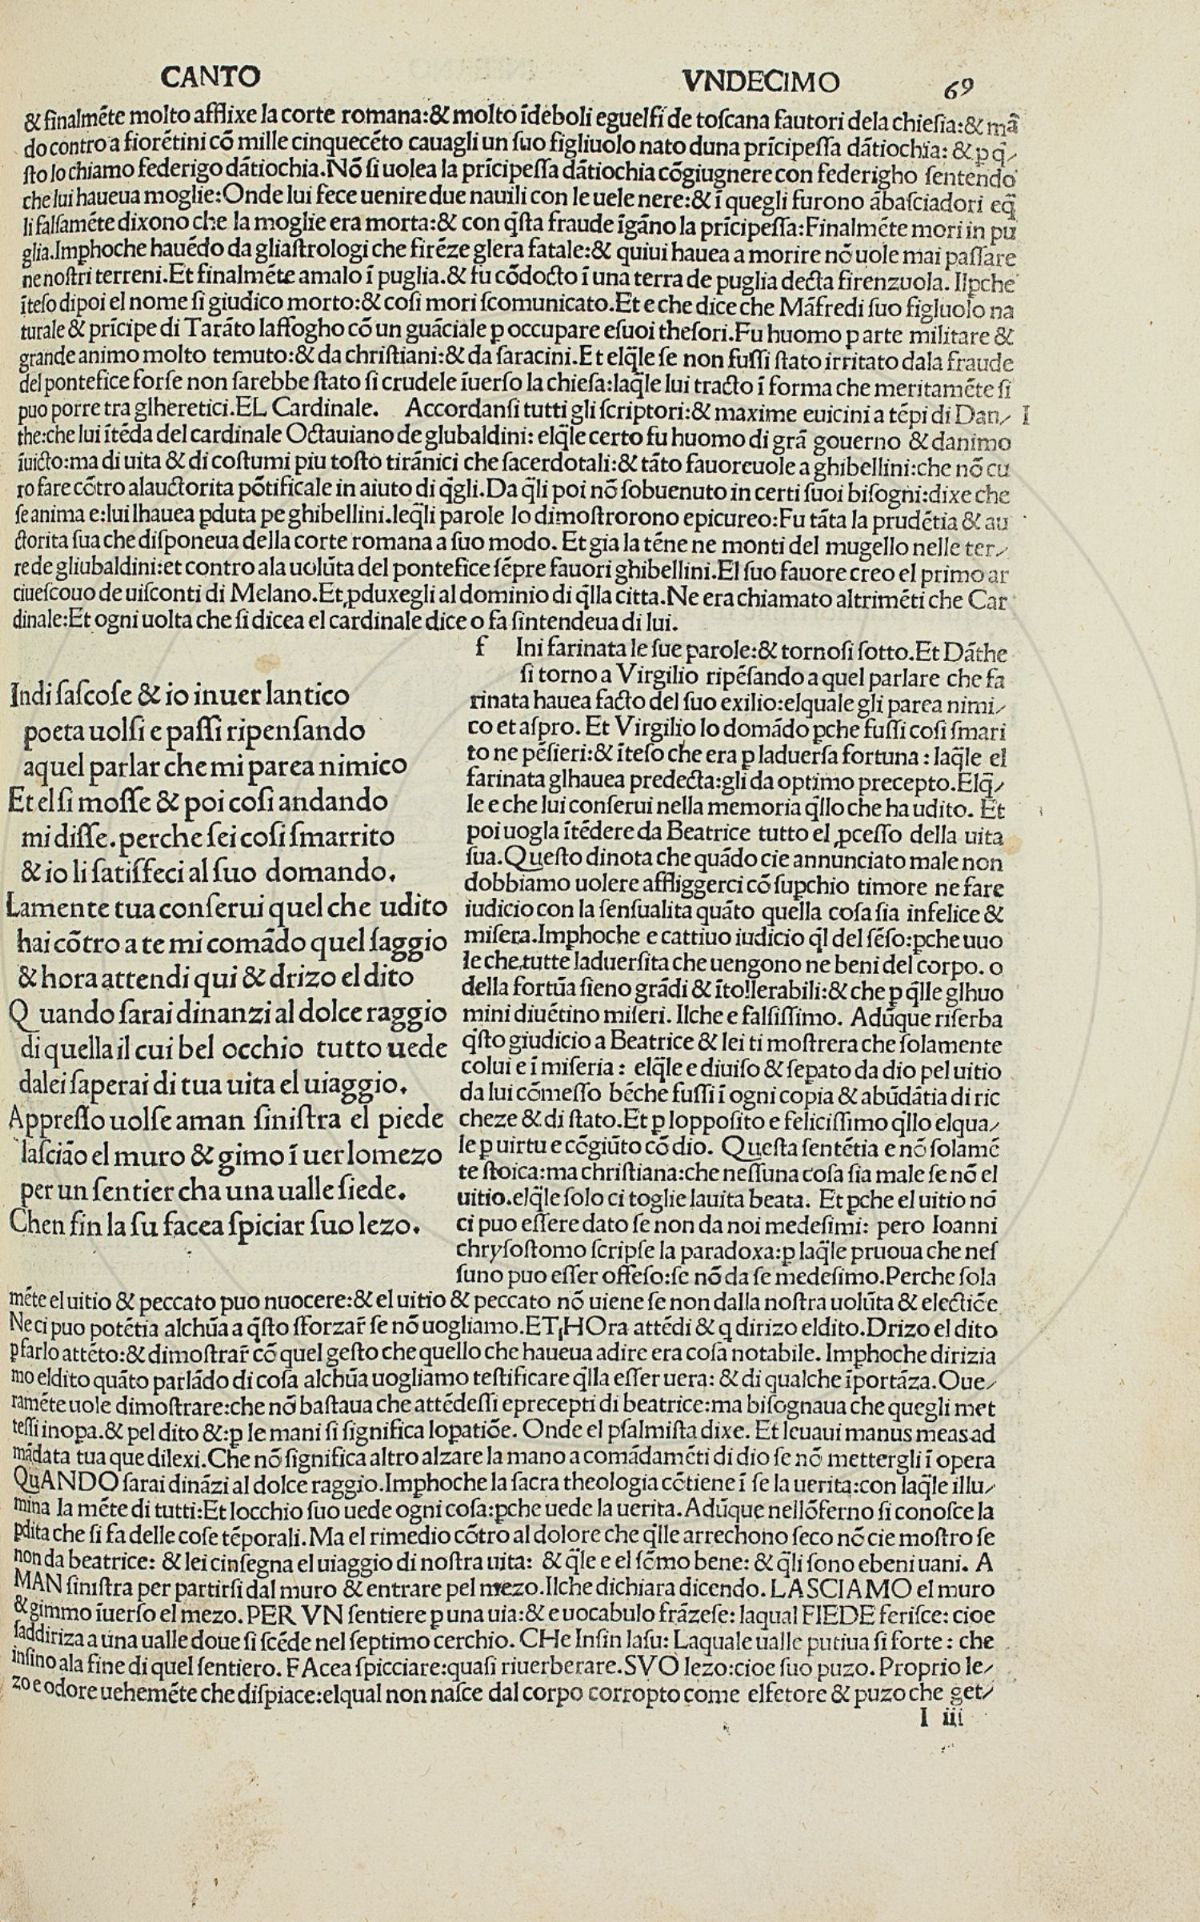 CANTO VNDECIMO 69
& finalmẽte molto afflixe la corte romana:& molto ĩdeboli eguelfi de toſcana fautori dela chieſia:& mã
do contro a fiorẽtini cõ mille cinquecẽto cauagli un ſuo figliuolo nato duna prĩcipeſſa dãtiochia: & p q̃⸗
ſto lo chiamo federigo dãtiochia.Nõ ſi uolea la prĩcipeſſa dãtiochia cõgiugnere con federigho ſentendo
che lui haueua moglie:Onde lui fece uenire due nauili con le uele nere:& ĩ quegli furono ãbaſciadori eq̃
li falſamẽte dixono che la moglie era morta:& con q̃ſta fraude ĩgãno la prĩcipeſſa:Finalmẽte mori in pu
glia.Imphoche hauẽdo da gliaſtrologi che firẽze glera fatale:& quiui hauea a morire nõ uole mai paſſare
ne noſtri terreni.Et finalmẽte amalo ĩ puglia.& fu cõdocto ĩ una terra de puglia decta firenzuola. Ilꝑche
ĩteſo dipoi el nome ſi giudico morto:& coſi mori ſcomunicato.Et e che dice che Mãfredi ſuo figluolo na
turale & prĩcipe di Tarãto laffogho cõ un guãciale ꝑ occupare eſuoi theſori.Fu huomo ꝑ arte militare &
grande animo molto temuto:& da chriſtiani:& da ſaracini.Et elq̃le ſe non fuſſi ſtato irritato dala fraude
del pontefice forſe non ſarebbe ſtato ſi crudele ĩuerſo la chieſa:laq̃le lui tracto ĩ forma che meritamẽte ſi
puo porre tra glheretici.EL Cardinale. Accordanſi tutti gli ſcriptori:& maxime euicini a tẽpi di Dan⸗ I
the:che lui ĩtẽda del cardinale Octauiano de glubaldini: elq̃le certo fu huomo di grã gouerno & danimo
ĩuicto:ma di uita & di coſtumi piu toſto tirãnici che ſacerdotali:& tãto fauoreuole a ghibellini:che nõ cu
ro fare cõtro alauctorita põtificale in aiuto di q̃gli.Da q̃li poi nõ ſobuenuto in certi ſuoi biſogni:dixe che
ſe anima e:lui lhauea ꝑduta pe ghibellini.leq̃li parole lo dimoſtrorono epicureo:Fu tãta la prudẽtia & au
ctorita ſua che diſponeua della corte romana a ſuo modo. Et gia la tẽne ne monti del mugello nelle ter⸗
re de gliubaldini:et contro ala uolũta del pontefice ſẽpre fauori ghibellini.El ſuo fauore creo el primo ar
ciueſcouo de uiſconti di Melano.Et ꝓduxegli al dominio di q̃lla citta.Ne era chiamato altrimẽti che Car
dinale:Et ogni uolta che ſi dicea el cardinale dice o fa ſintendeua di lui.
Indi ſaſcoſe & io inuer lantico
poeta uolſi e paſſi ripenſando
aquel parlar che mi parea nimico
Et el ſi moſſe & poi coſi andando
mi diſſe.perche ſei coſi ſmarrito
& io li ſatiſfeci al ſuo domando.
Lamente tua conſerui quel che udito
hai cõtro a te mi comãdo quel ſaggio
& hora attendi qui & drizo el dito
Q uando ſarai dinanzi al dolce raggio
di quella il cui bel occhio tutto uede
dalei ſaperai di tua uita el uiaggio.
Appreſſo uolſe aman ſiniſtra el piede
laſcião el muro & gimo ĩ uer lo mezo
per un ſentier cha una ualle ſiede.
Chen fin la ſu facea ſpiciar ſuo lezo.
f Ini farinata le ſue parole:& tornoſi ſotto.Et Dãthe
ſi torno a Virgilio ripẽſando a quel parlare che fa
rinata hauea facto del ſuo exilio:elquale gli parea nimi⸗
co et aſpro. Et Virgilio lo domãdo ꝑche fuſſi coſi ſmari
to ne pẽſieri:& ĩteſo che era ꝑ laduerſa fortuna : laq̃le el
farinata glhauea predecta:gli da optimo precepto.Elq̃⸗
le e che lui conſerui nella memoria q̃llo che ha udito. Et
poi uogla ĩtẽdere da Beatrice tutto el ꝓceſſo della uita
ſua.Queſto dinota che quãdo cie annunciato male non
dobbiamo uolere affliggerci cõ ſuꝑchio timore ne fare
iudicio con la ſenſualita quãto quella coſa ſia infelice &
miſera.Imphoche e cattiuo iudicio q̃l del ſẽſo:ꝑche uuo
le che tutte laduerſita che uengono ne beni del corpo. o
della fortũa ſieno grãdi & ĩtollerabili:& che ꝑ q̃lle glhuo
mini diuẽtino miſeri. Ilche e falſiſſimo. Adũque riſerba
q̃ſto giudicio a Beatrice & lei ti moſtrera che ſolamente
colui e ĩ miſeria : elq̃le e diuiſo & ſeꝑato da dio pel uitio
da lui cõmeſſo bẽche fuſſi ĩ ogni copia & abũdãtia di ric
cheze & di ſtato. Et ꝑ loppoſito e feliciſſimo q̃llo elqua⸗
le ꝑ uirtu e cõgiũto cõ dio. Queſta ſentẽtia e nõ ſolamẽ
te ſtoica:ma chriſtiana:che neſſuna coſa ſia male ſe nõ el
uitio.elq̃le ſolo ci toglie la uita beata. Et ꝑche el uitio nõ
ci puo eſſere dato ſe non da noi medeſimi: pero Ioanni
chryſoſtomo ſcripſe la paradoxa:ꝑ laq̃le pruoua che neſ
ſuno puo eſſer offeſo:ſe nõ da ſe medeſimo.Perche ſola
mẽte el uitio & peccato puo nuocere:& el uitio & peccato nõ uiene ſe non dalla noſtra uolũta & electiõe
Ne ci puo potẽtia alchũa a q̃ſto ſforzar̃ ſe nõ uogliamo.ET HOra attẽdi & q dirizo eldito.Drizo el dito
ꝑ farlo attẽto:& dimoſtrar̃ cõ quel geſto che quello che haueua adire era coſa notabile. Imphoche dirizia
mo eldito quãto parlãdo di coſa alchũa uogliamo teſtificare q̃lla eſſer uera: & di qualche ĩportãza.Oue⸗
ramẽte uole dimoſtrare:che nõ baſtaua che attẽdeſſi eprecepti di beatrice:ma biſognaua che quegli met
teſſi inopa.& pel dito &:ꝑ le mani ſi ſignifica lopatiõe. Onde el pſalmiſta dixe. Et leuaui manus meas ad
mãdata tua que dilexi.Che nõ ſignifica altro alzare la mano a comãdamẽti di dio ſe nõ mettergli ĩ opera
QuANDO ſarai dinãzi al dolce raggio.Imphoche la ſacra theologia cõtiene ĩ ſe la uerita:con laq̃le illu⸗
mina la mẽte di tutti:Et locchio ſuo uede ogni coſa:ꝑche uede la uerita. Adũque nellõferno ſi conoſce la
ꝑdita che ſi fa delle coſe tẽporali. Ma el rimedio cõtro al dolore che q̃lle arrechono ſeco nõ cie moſtro ſe
non da beatrice: & lei cinſegna el uiaggio di noſtra uita: & q̃le e el ſõmo bene: & q̃li ſono ebeni uani. A
MAN ſiniſtra per partirſi dal muro & entrare pel mezo.Ilche dichiara dicendo. LASCIAMO el muro
& gimmo ĩuerſo el mezo. PER VN ſentiere ꝑ una uia:& e uocabulo frãzeſe: laqual FIEDE feriſce: cioe
ſaddiriza a una ualle doue ſi ſcẽde nel ſeptimo cerchio. CHe Inſin laſu: Laquale ualle putiua ſi forte : che
inſino ala fine di quel ſentiero. FAcea ſpicciare:quaſi riuerberare.SVO lezo:cioe ſuo puzo. Proprio le⸗
zo e odore uehemẽte che diſpiace:elqual non naſce dal corpo corropto come elfetore & puzo che get⸗
I iii